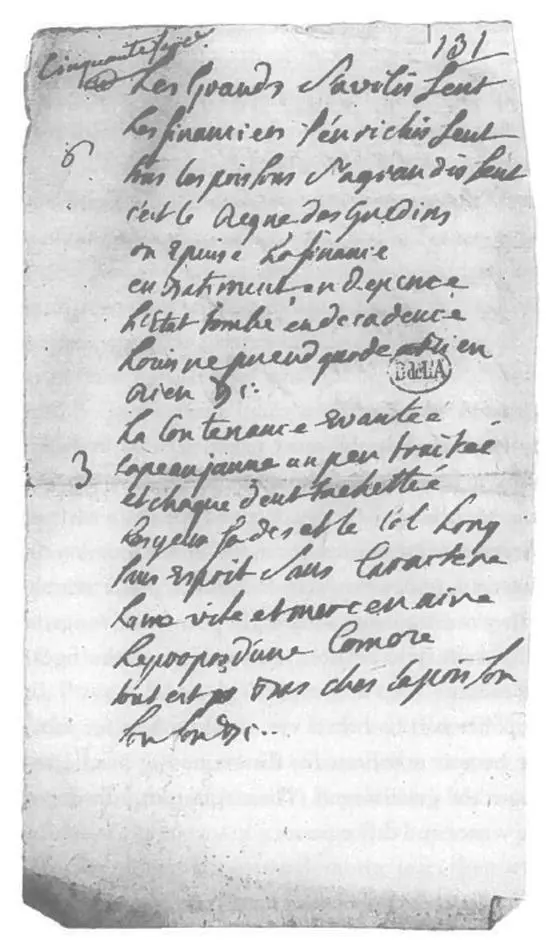 131
Cinquante
Les Grands S'avilissent
Les financiers S'enrichissent
6
tous les poissons S'agrandissent
c'est le Regne des Gredins
on Epuise La finance
en batiment en depence
L'Etat tombe en decadence
Louis ne prend garde a Rien
BdelA
Rien &c.
La Contenance Evantée
3
la peau jaune un peu traitée
et chaque dent tachettée
les yeux fades et le Col Long
sans Esprit Sans Caractere
L'ame vile et mercenaire
Le propos d'une Comere
tout est bas ches la poisson
son son &c..